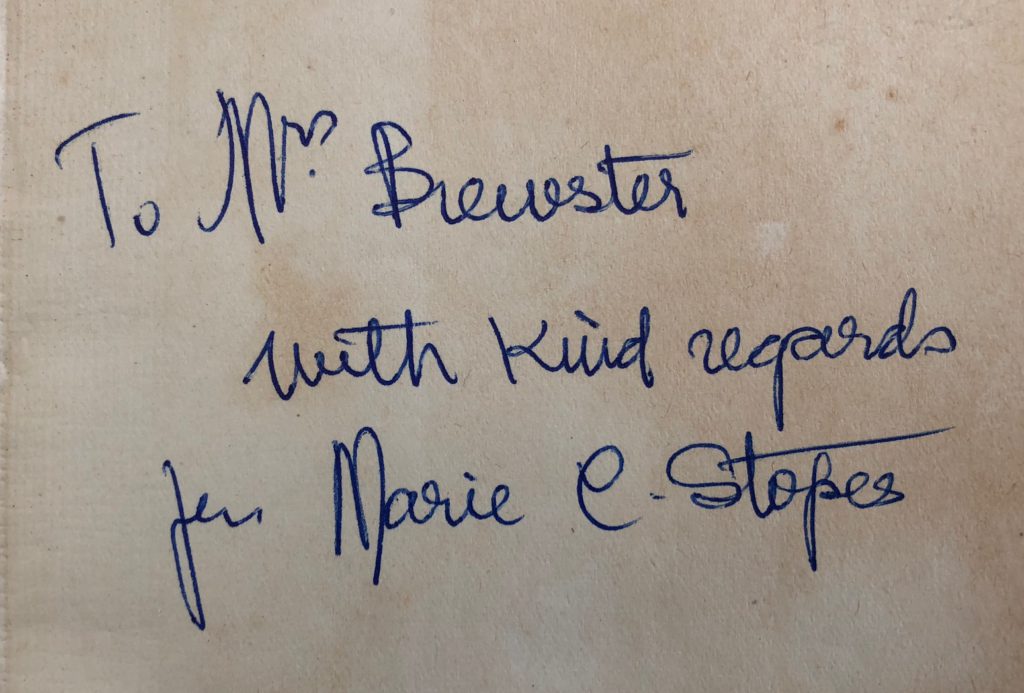 To Mrs. Brewster
with kind regards
Marie C. Stopes